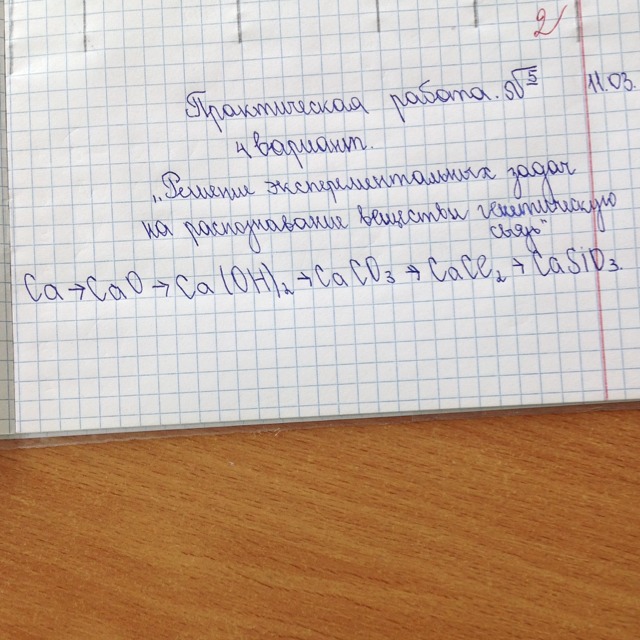 2
Практическая работа. №5 11.03.
4 вариант.
„Решение эксперементальных задач
на распознавание веществи генетическую
связь"
Ca → CaO → Ca(OH)₂ → CaCO₃ → CaCl₂ → CaSiO₃.